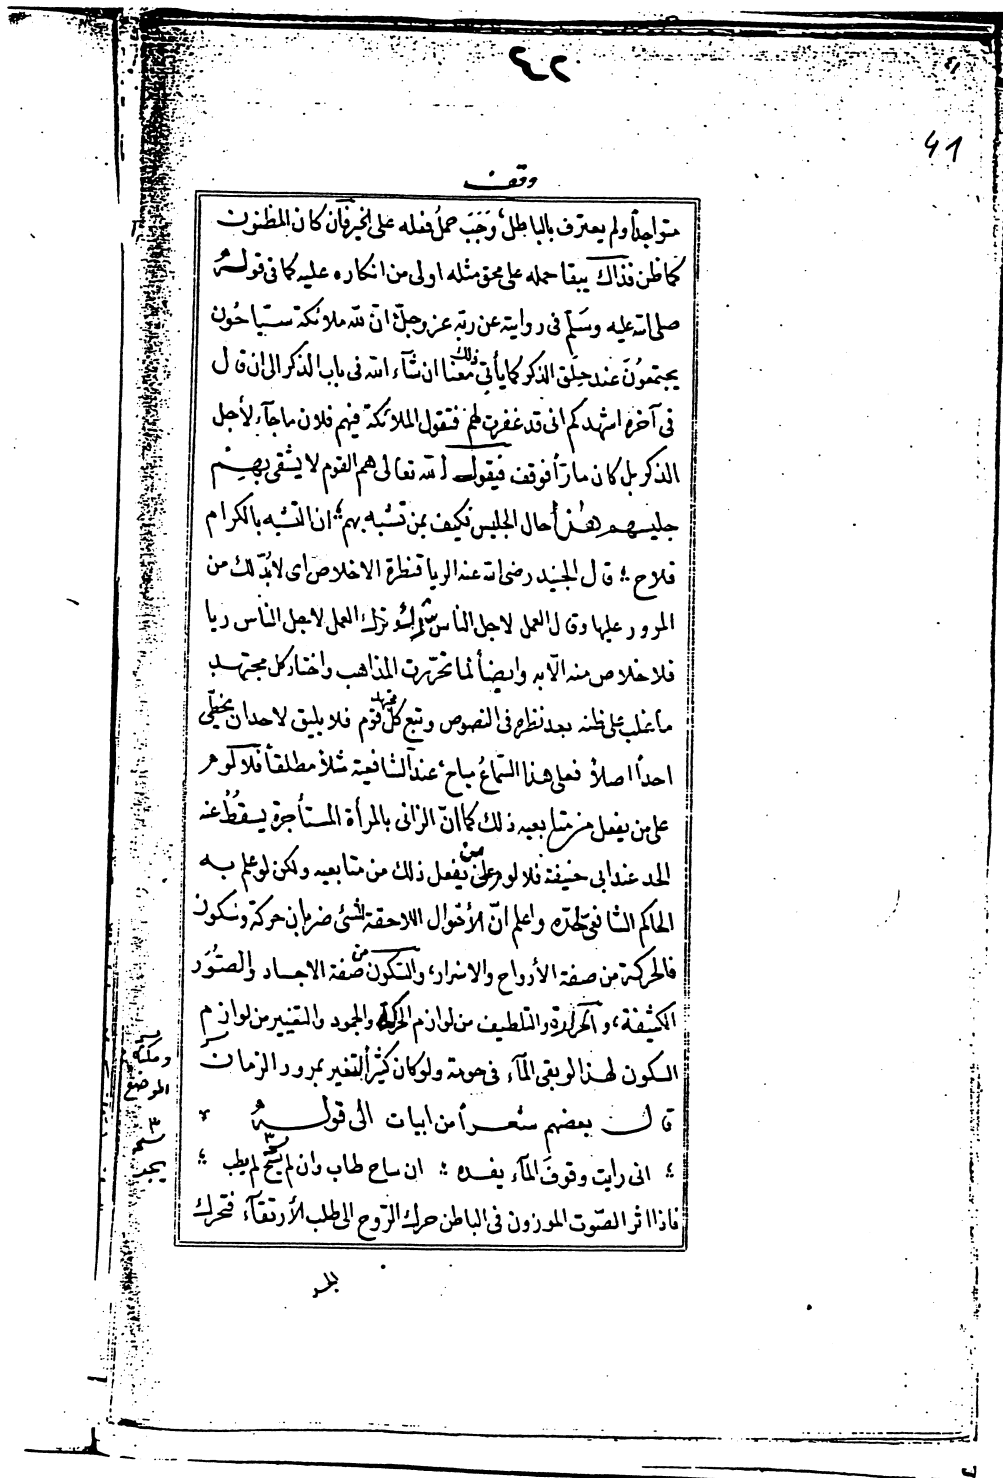 41
وقف
متواجداً ولم يعترف بالباطل، وَجَبَ حملُ فعله على الخير فأن كان المظنون
كما ظن فذاك يبقا حمله على محق مثله اولى من انكاره عليه كما فى قوله
صلى الله عليه وسَلّم فى روايته عن ربّه عز وجلّ انّ لله ملائكة سَيّاحُون
يجتمعُونَ عند حِلَق الذكر كما يأتى ذلك معنا ان شآء الله فى باب الذكر الى ان قال
فى آخره اشهدكم انى قد غفرت لهم فتقول الملائكة فيهم فلان ما جآء لأجل
الذكر بل كان مارّاً فوقف فيقول الله تعالى هم القوم لا يشقى بهم
جليسهم هذا حال الجليس فكيف بمن تشبه بهم؛ ان التشبه بالكرام
فلاح ؛ قال الجنيد رضى الله عنه الريا قنطرة الاخلاص اى لا بُدّ لك من
المرور عليها وقال العمل لاجل الناس شرك وترك العمل لاجل الناس ريا
فلا خلاص منه الّا به وايضاً لما تحررت المذاهب واختار كل مجتهد
ما غلب على ظنه بعد نظره فى النصوص وتبع كلّ مجتهد قوم فلا يليق لاحد ان يخطّى
احداً اصلاً فعلى هذا السّماعُ مباح، عند الشافعية مثلاً مطلقاً فلا لوم
على من يفعل من متابعيه ذلك كما انّ الزانى بالمرأة المستأجرة يسقطُ عنه
الحد عند ابى حنيفة فلا لوم على من يفعل ذلك من متابعيه ولكن لو علم به
الحاكم الشافعى لحدّه واعلم انّ الأحوال اللاحقة لشئ ضربان حركة وسكون
فالحركة من صفة الأرواح والاسرار، والسّكون من صفة الاجساد والصُوَر
الكثيفة، والحرارة والتلطيف من لوازم الحركة والجمود والتغيير من لوازم
السكون لهذا لو بقى المآء فى حوضه ولو كان كثيراً لتغير بمرور الزمان
قال بعضهم شعراً من ابيات الى قوله
؛ انى رايت وقوفَ المآء يفسده ؛ ان ساح طاب وان لم يسح لم يطب ؛
فاذا اثر الصّوت الموزون فى الباطن حرك الرّوح الى طلب الأرتقآء فتحرك
ومكثه
الموضع
٣
يجر